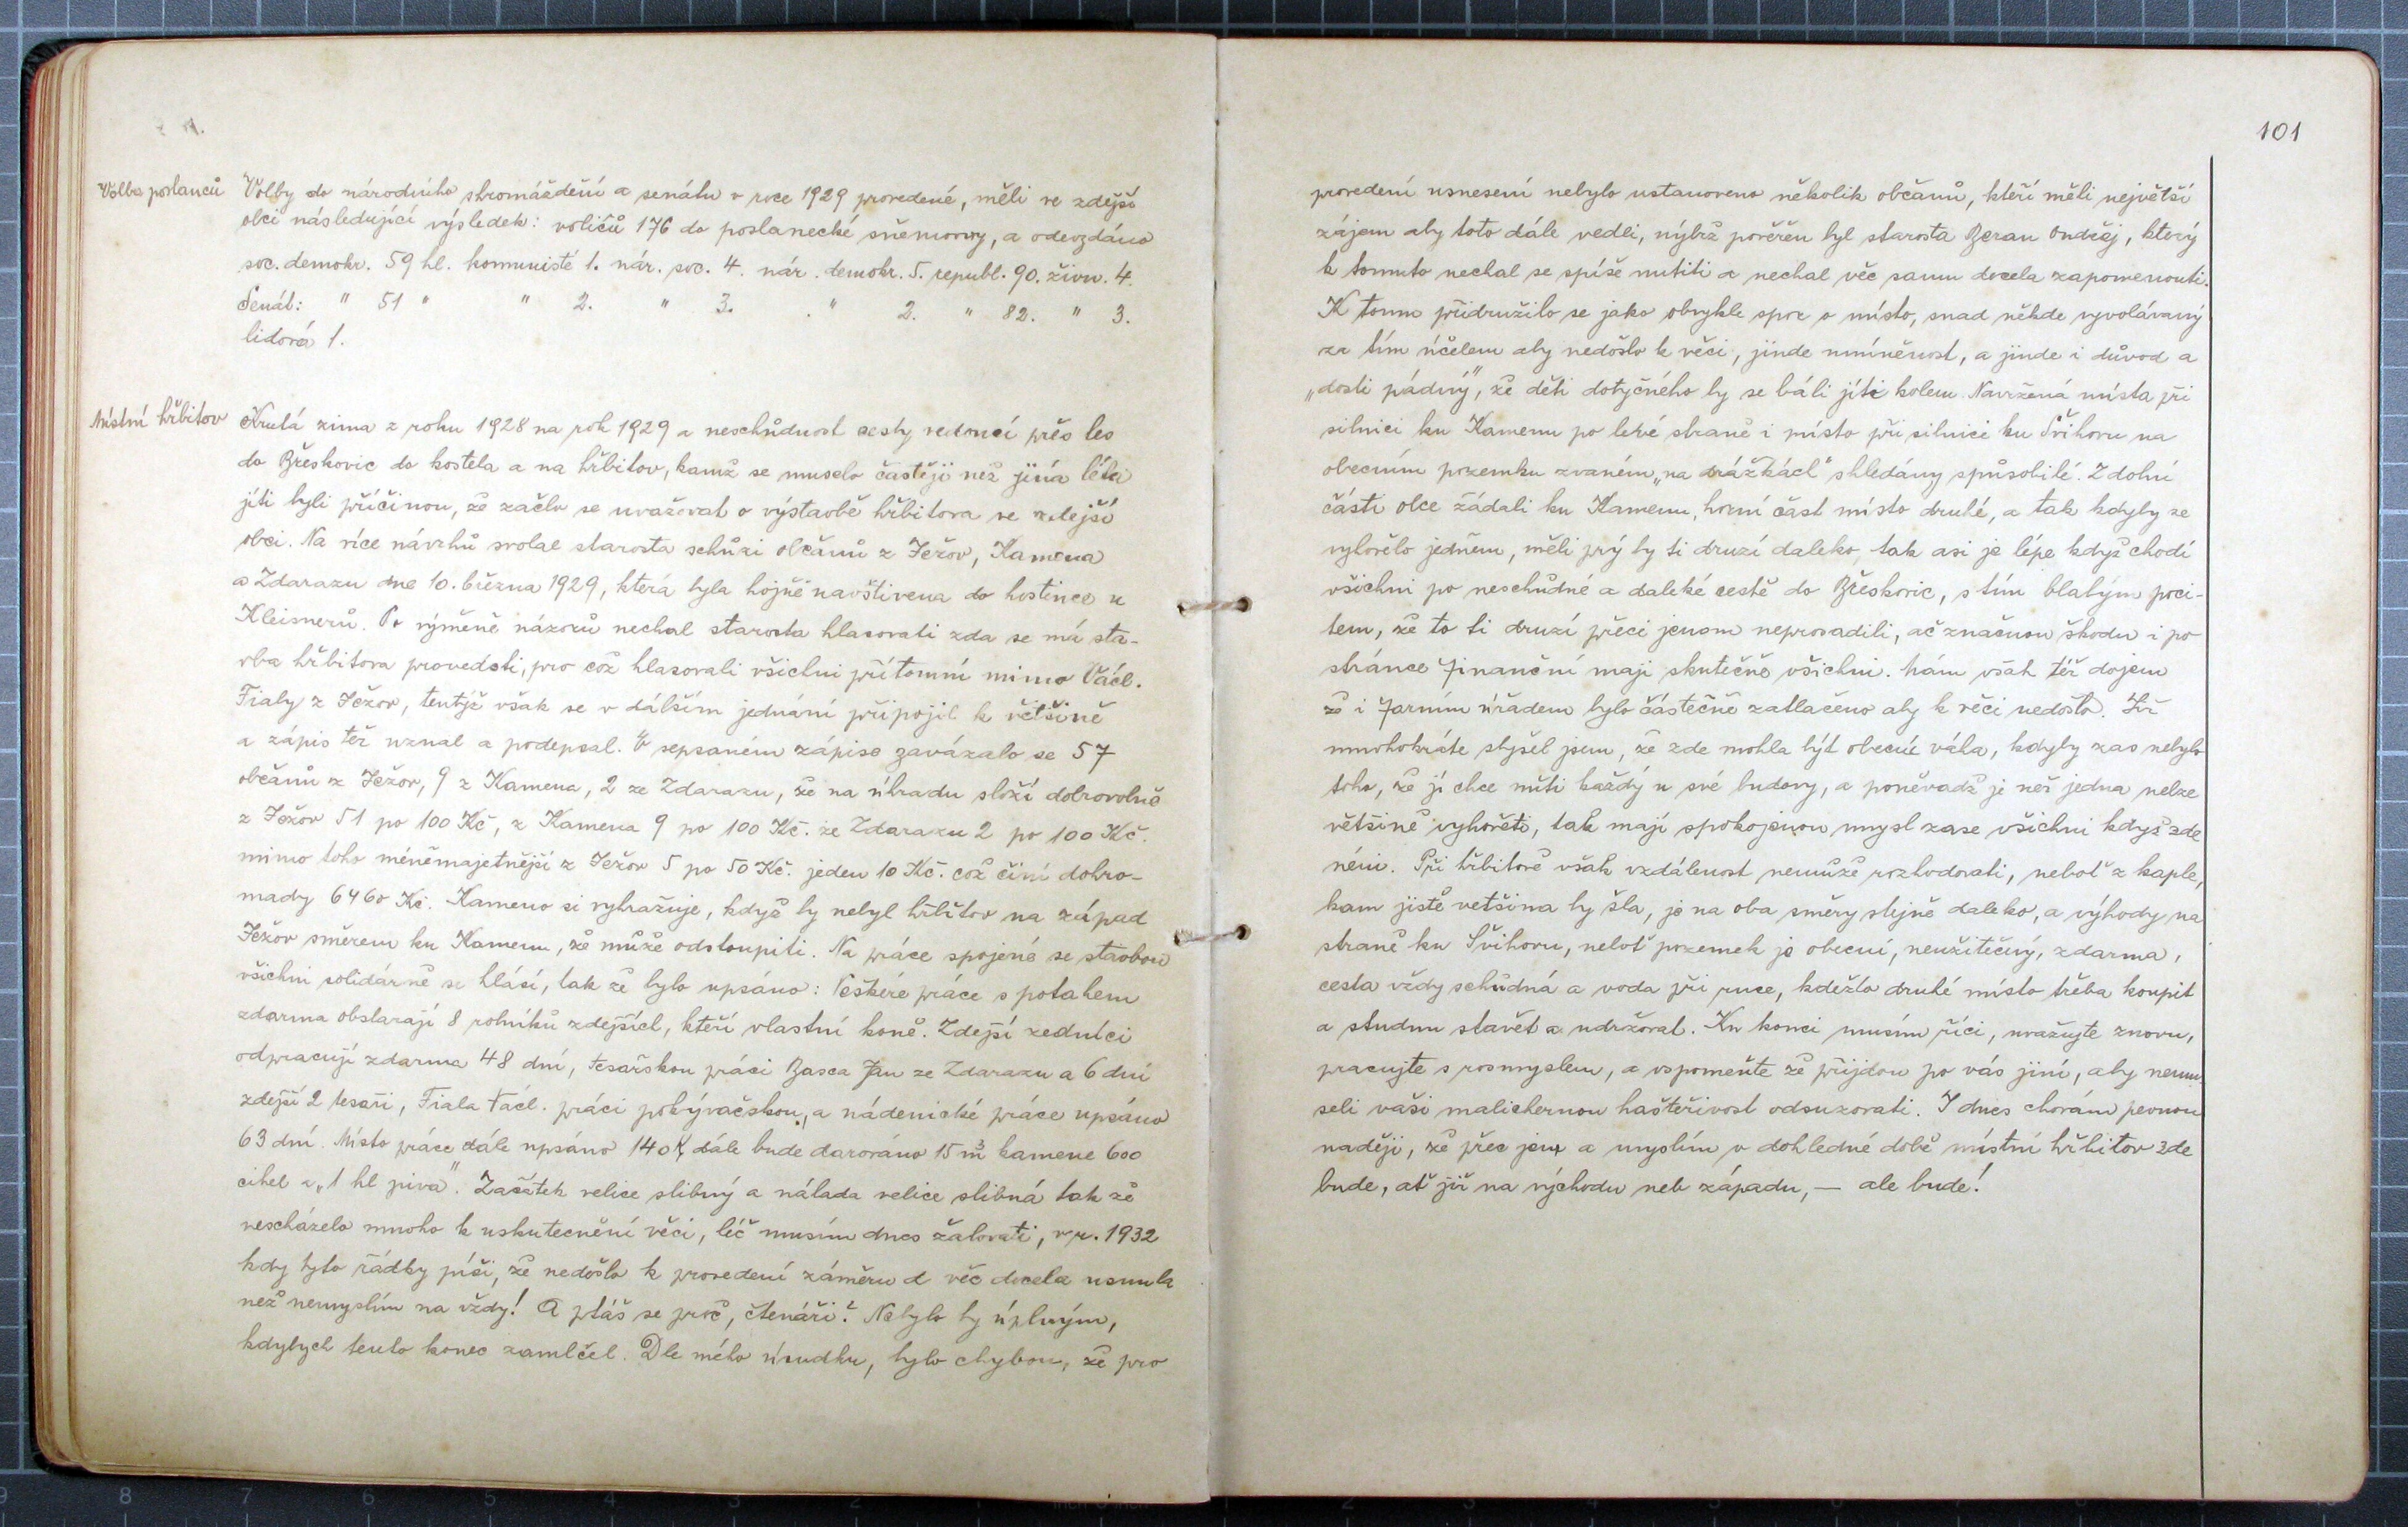 Volba poslanců
Volby do národního shromáždění a senátu v roce 1929 provedené, měli ve zdejší
obci následující výsledek: voličů 176 do poslanecké sněmovny, a odevzdáno
soc. demokr. 59 hl. komunisté 1. nár. soc. 4. nár. demokr. 5. republ. 90. živn. 4.
Senát: " 51 " " 2. " 3. " 2. " 82. " 3.
lidová 1.
Místní hřbitov
Krutá zima z roku 1928 na rok 1929 a neschůdnost cesty vedoucí přes les
do Březkovic do kostela a na hřbitov, kamž se muselo častěji než jiná léta
jíti byli příčinou, že začlo se uvažovat o výstavbě hřbitova ve zdejší
obci. Na více návrhů svolal starosta schůzi občanů z Ježov, Kamena
a Zdarazu dne 10. března 1929, která byla hojně navštívena do hostince u
Kleisnerů. Po výměně názorů nechal starosta hlasovati zda se má sta-
vba hřbitova provedsti, pro což hlasovali všichni přítomní mimo Václ.
Fialy z Ježov, tentýž však se v dálším jednání připojil k většině
a zápis též uznal a podepsal. V sepsaném zápise zavázalo se 57
občanů z Ježov, 9 z Kamena, 2 ze Zdarazu, že na úhradu složí dobrovolně
z Ježov 51 po 100 Kč, z Kamena 9 po 100 Kč. ze Zdarazu 2 po 100 Kč.
mimo toho méněmajetnější z Ježov 5 po 50 Kč. jeden 10 Kč. což činí dohro-
mady 6460 Kč. Kameno si vyhražuje, když by nebyl hřbitov na západ
Ježov směrem ku Kamenu, že může odstoupiti. Na práce spojené se stavbou
všichni solidárně se hlásí, tak že bylo upsáno: Veškeré práce s potahem
zdarma obstarají 8 rolníků zdejších, kteří vlastní koně. Zdejší zedníci
odpracují zdarma 48 dní, tesařskou práci Basca Jan ze Zdarazu a 6 dní
zdejší 2 tesaři, Fiala Václ. práci pokývačskou, a nádenické práce upsáno
63 dní. Místo práce dále upsáno 140 K, dále bude darováno 15 m³ kamene 600
cihel a „1 hl piva". Začátek velice slibný a nálada velice slibná tak že
nescházelo mnoho k uskutecnění věci, léč musím dnes žalovati, v r. 1932
kdy tyto řádky píši, že nedošlo k provedení záměru a věc docela usnula
než nemyslím na vždy! A ptáš se proč, čtenáři? Nebylo by úplným,
kdybych tento konec zamlčel. Dle mého úsudku, bylo chybou, že pro
101
provedení usnesení nebylo ustanoveno několik občanů, kteří měli největší
zájem aby toto dále vedli, nýbrž pověřen byl starosta Beran Ondřej, který
k tomuto nechal se spíše nutiti a nechal věc samu docela zapomenouti.
K tomu přidružilo se jako obvykle spor o místo, snad někde vyvolávaný
za tím účelem aby nedošlo k věci, jinde umíněnost, a jinde i důvod a
„dosti pádný", že děti dotyčného by se báli jíti kolem. Navržená místa při
silnici ku Kamenu po levé straně i místo při silnici ku Švihovu na
obecním pozemku zvaném „na drážkách" shledány spůsobilé. Z dolní
části obce žádali ku Kamenu, horní část místo druhé, a tak kdyby se
vyhovělo jedněm, měli prý by ti druzí daleko, tak asi je lépe když chodí
všichni po neschůdné a daleké cestě do Březkovic, s tím blahým poci-
tem, že to ti druzí přeci jenom neprosadili, ač značnou škodu i po
stránce finanční mají skutečně všichni. Mám však též dojem
že i farním úřadem bylo částečně zatlačeno aby k věci nedošlo. Již
mnohokráte slyšel jsem, že zde mohla být obecní váha, kdyby zas nebylo
toho, že jí chce míti každý u své budovy, a poněvadž je než jedna nelze
většině vyhověti, tak mají spokojenou mysl zase všichni když zde
néni. Při hřbitově však vzdálenost nemůže rozhodovati, neboť z kaple,
kam jistě vetšina by šla, je na oba směry stejně daleko, a výhody na
straně ku Švihovu, neboť pozemek je obecní, neužitečný, zdarma,
cesta vždy schůdná a voda při ruce, kdežto druhé místo třeba koupit
a studnu stavět a udržovat. Ku konci musím říci, uvažujte znovu,
pracujte s rosmyslem, a vspomeňte že přijdou po vás jiní, aby nemu-
seli vaši malichernou hašteřivost odsuzovati. I dnes chovám pevnou
naději, že přec jen a myslím v dohledné době místní hřbitov zde
bude, ať již na východu neb západu, — ale bude!